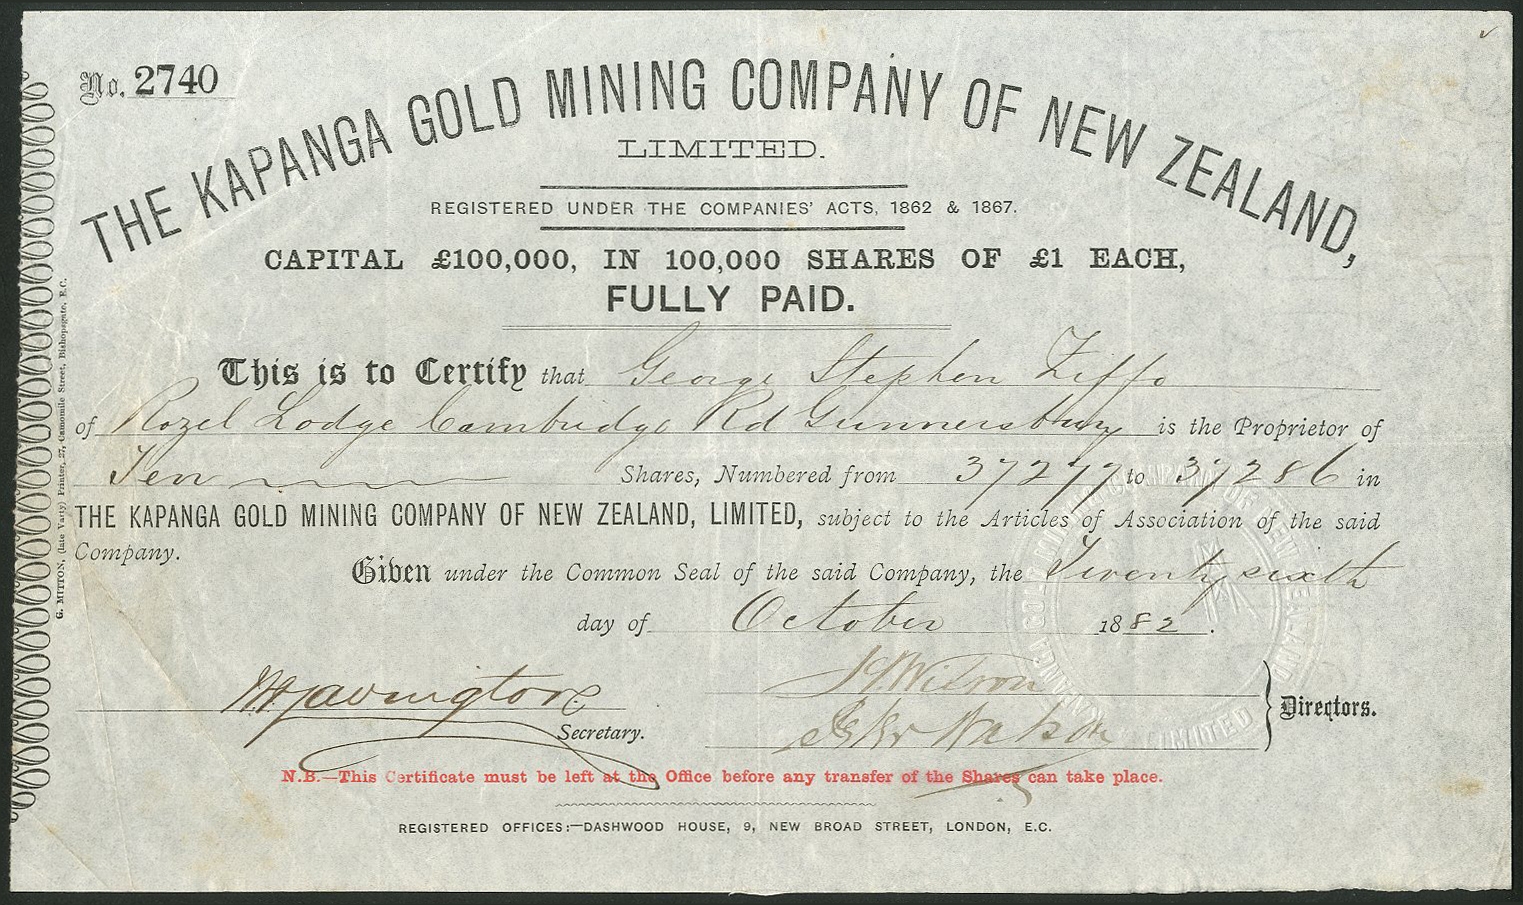 No. 2740
THE KAPANGA GOLD MINING COMPANY OF NEW ZEALAND,
LIMITED.
REGISTERED UNDER THE COMPANIES' ACTS, 1862 & 1867.
CAPITAL £100,000, IN 100,000 SHARES OF £1 EACH,
FULLY PAID.
This is to Certify that George Stephen Ziffo
of Rozel Lodge Cambridge Rd Gunnersbury is the Proprietor of
Ten Shares, Numbered from 37277 to 37286 in
THE KAPANGA GOLD MINING COMPANY OF NEW ZEALAND, LIMITED, subject to the Articles of Association of the said
Company.
Given under the Common Seal of the said Company, the Twenty sixth
day of October 1882.
Secretary.
Wilson
Watson
Directors.
N.B.—This Certificate must be left at the Office before any transfer of the Shares can take place.
REGISTERED OFFICES:—DASHWOOD HOUSE, 9, NEW BROAD STREET, LONDON, E.C.
G. MITTON, (late Varty) Printer, 27, Camomile Street, Bishopsgate, E.C.
KAPANGA GOLD MINING COMPANY OF NEW ZEALAND LIMITED